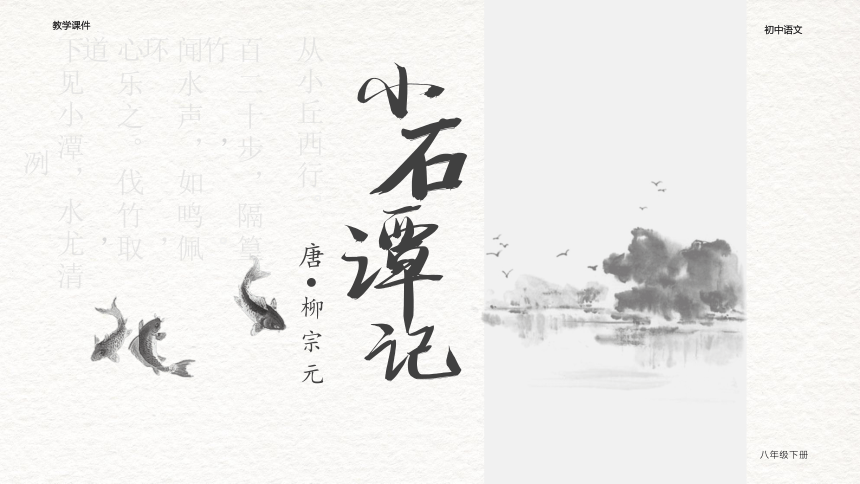 教学课件
初中语文
小石谭记
唐•柳宗元
从小丘西行
百二十步，隔篁
竹，
闻水声，如鸣佩
环，
心乐之。伐竹取
道，
下见小潭，水尤清
冽
八年级下册